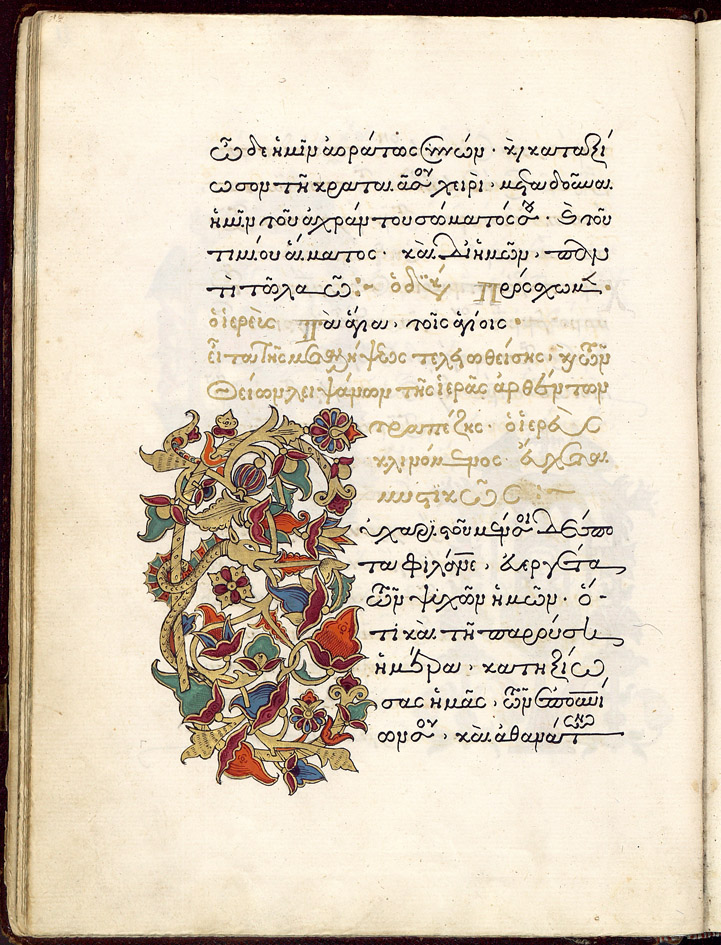 ὧδε ἡμῖν ἀοράτως συνών· καὶ καταξί
ωσον τῇ κραταιᾷ σου χειρὶ, μεταδοῦναι
ἡμῖν τοῦ ἀχράντου σώματός σου· καὶ τοῦ
τιμίου αἵματος· καὶ δι' ἡμῶν, παν
τὶ τῷ λαῷ :~ ὁ διάκ Πρόσχωμεν·
ὁ ἱερεὺς Τὰ ἅγια, τοῖς ἁγίοις·
εἶτα τῆς μεταλήψεως τελειωθείσης, καὶ τῶν
θείων λειψάνων τῆς ἱερᾶς ἀρθέντων
τραπέζης· ὁ ἱερεὺς
κλινόμενος εὔχεται
μυστικῶς :~
Εὐχαριστοῦμέν σοι Δέσποτα
τα φιλάνθρωπε, εὐεργέτα
τῶν ψυχῶν ἡμῶν· ὅ-
τι καὶ τῇ παρούσῃ
ἡμέρᾳ, κατηξίω
σας ἡμᾶς, τῶν ἐπουρανί
ων σου, καὶ ἀθανάτων